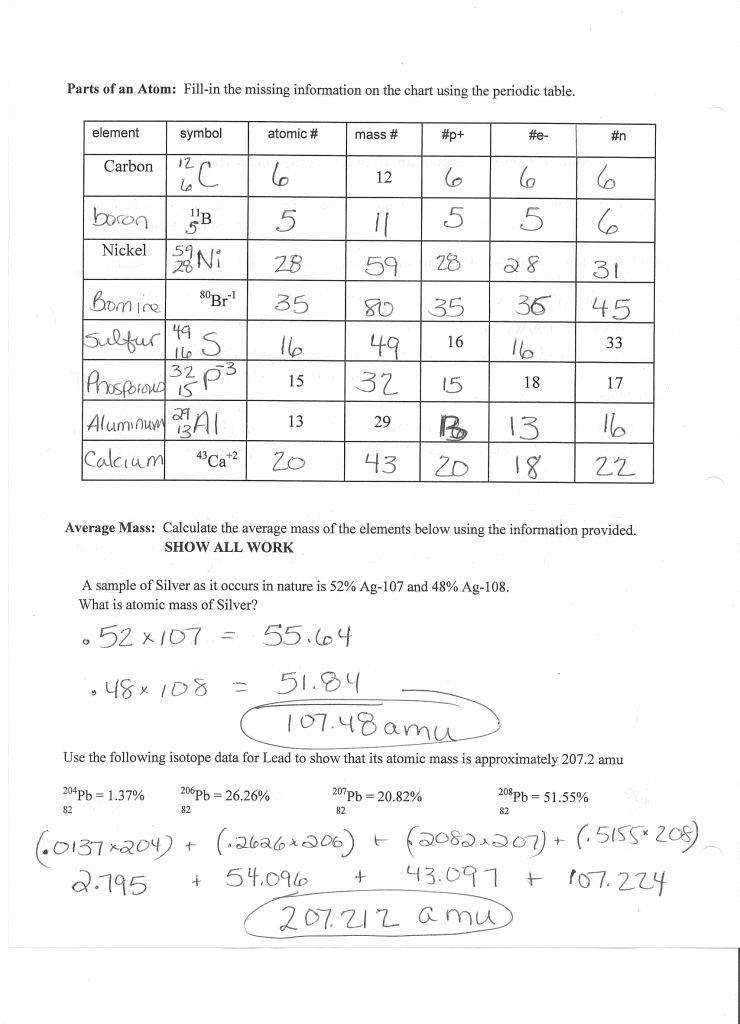 Parts of an Atom: Fill-in the missing information on the chart using the periodic table.
element symbol atomic # mass # #p+ #e- #n
Carbon 12 6 C 6 12 6 6 6
boron 11 5 B 5 11 5 5 6
Nickel 59 28 Ni 28 59 28 28 31
Bromine 80Br-1 35 80 35 36 45
Sulfur 49 16 S 16 49 16 16 33
Phosporous 32 15 P-3 15 32 15 18 17
Aluminum 29 13 Al 13 29 13 16
Calcium 43Ca+2 20 43 20 18 22
Average Mass: Calculate the average mass of the elements below using the information provided.
SHOW ALL WORK
A sample of Silver as it occurs in nature is 52% Ag-107 and 48% Ag-108.
What is atomic mass of Silver?
.52 x 107 = 55.64
.48 x 108 = 51.84
107.48 amu
Use the following isotope data for Lead to show that its atomic mass is approximately 207.2 amu
204Pb = 1.37% 206Pb = 26.26% 207Pb = 20.82% 208Pb = 51.55%
82 82 82 82
(.0137 x 204) + (.2626 x 206) + (.2082 x 207) + (.5155 x 208)
2.795 + 54.096 + 43.097 + 107.224
207.212 amu